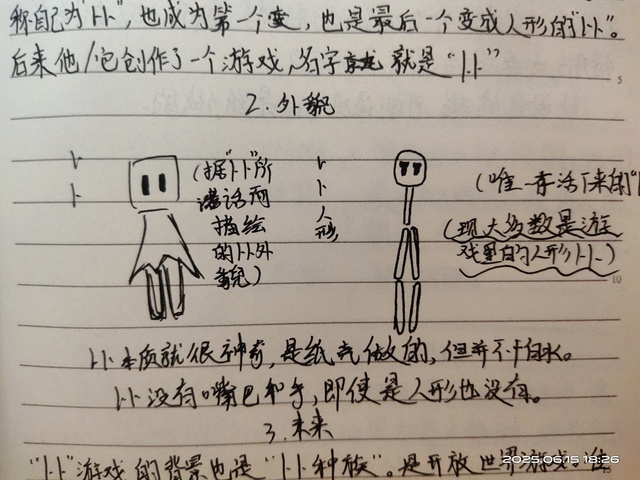 称自己为"卜卜",也成为第一个变,也是最后一个变成人形的"卜卜"。
后来他/它创作了一个游戏,名字就是"卜卜"
5
2.外貌
卜卜
(据"卜卜"所
话而
描绘
的卜卜外
貌)
卜卜人形
(唯一存活下来的"
(现大多数是游
戏里的人形卜卜)
10
卜卜本质就很神奇,是纸壳做的,但并不怕水。
卜卜没有嘴巴和手,即使是人形也没有。
3.未来
"卜卜"游戏的背景也是"卜卜种族"。是开放世界游戏。
2025.06.15 18:26